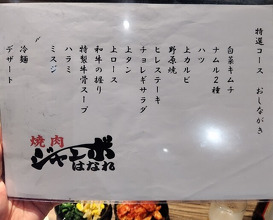 特選コース おしながき
白菜キムチ
ナムル2種
ハツ
上カルビ
野原焼
ヒレステーキ
チョレギサラダ
上タン
上ロース
和牛の握り
特製牛骨スープ
ハラミ
ミスジ
冷麺
デザート
焼肉
ジャンボ
はなれ